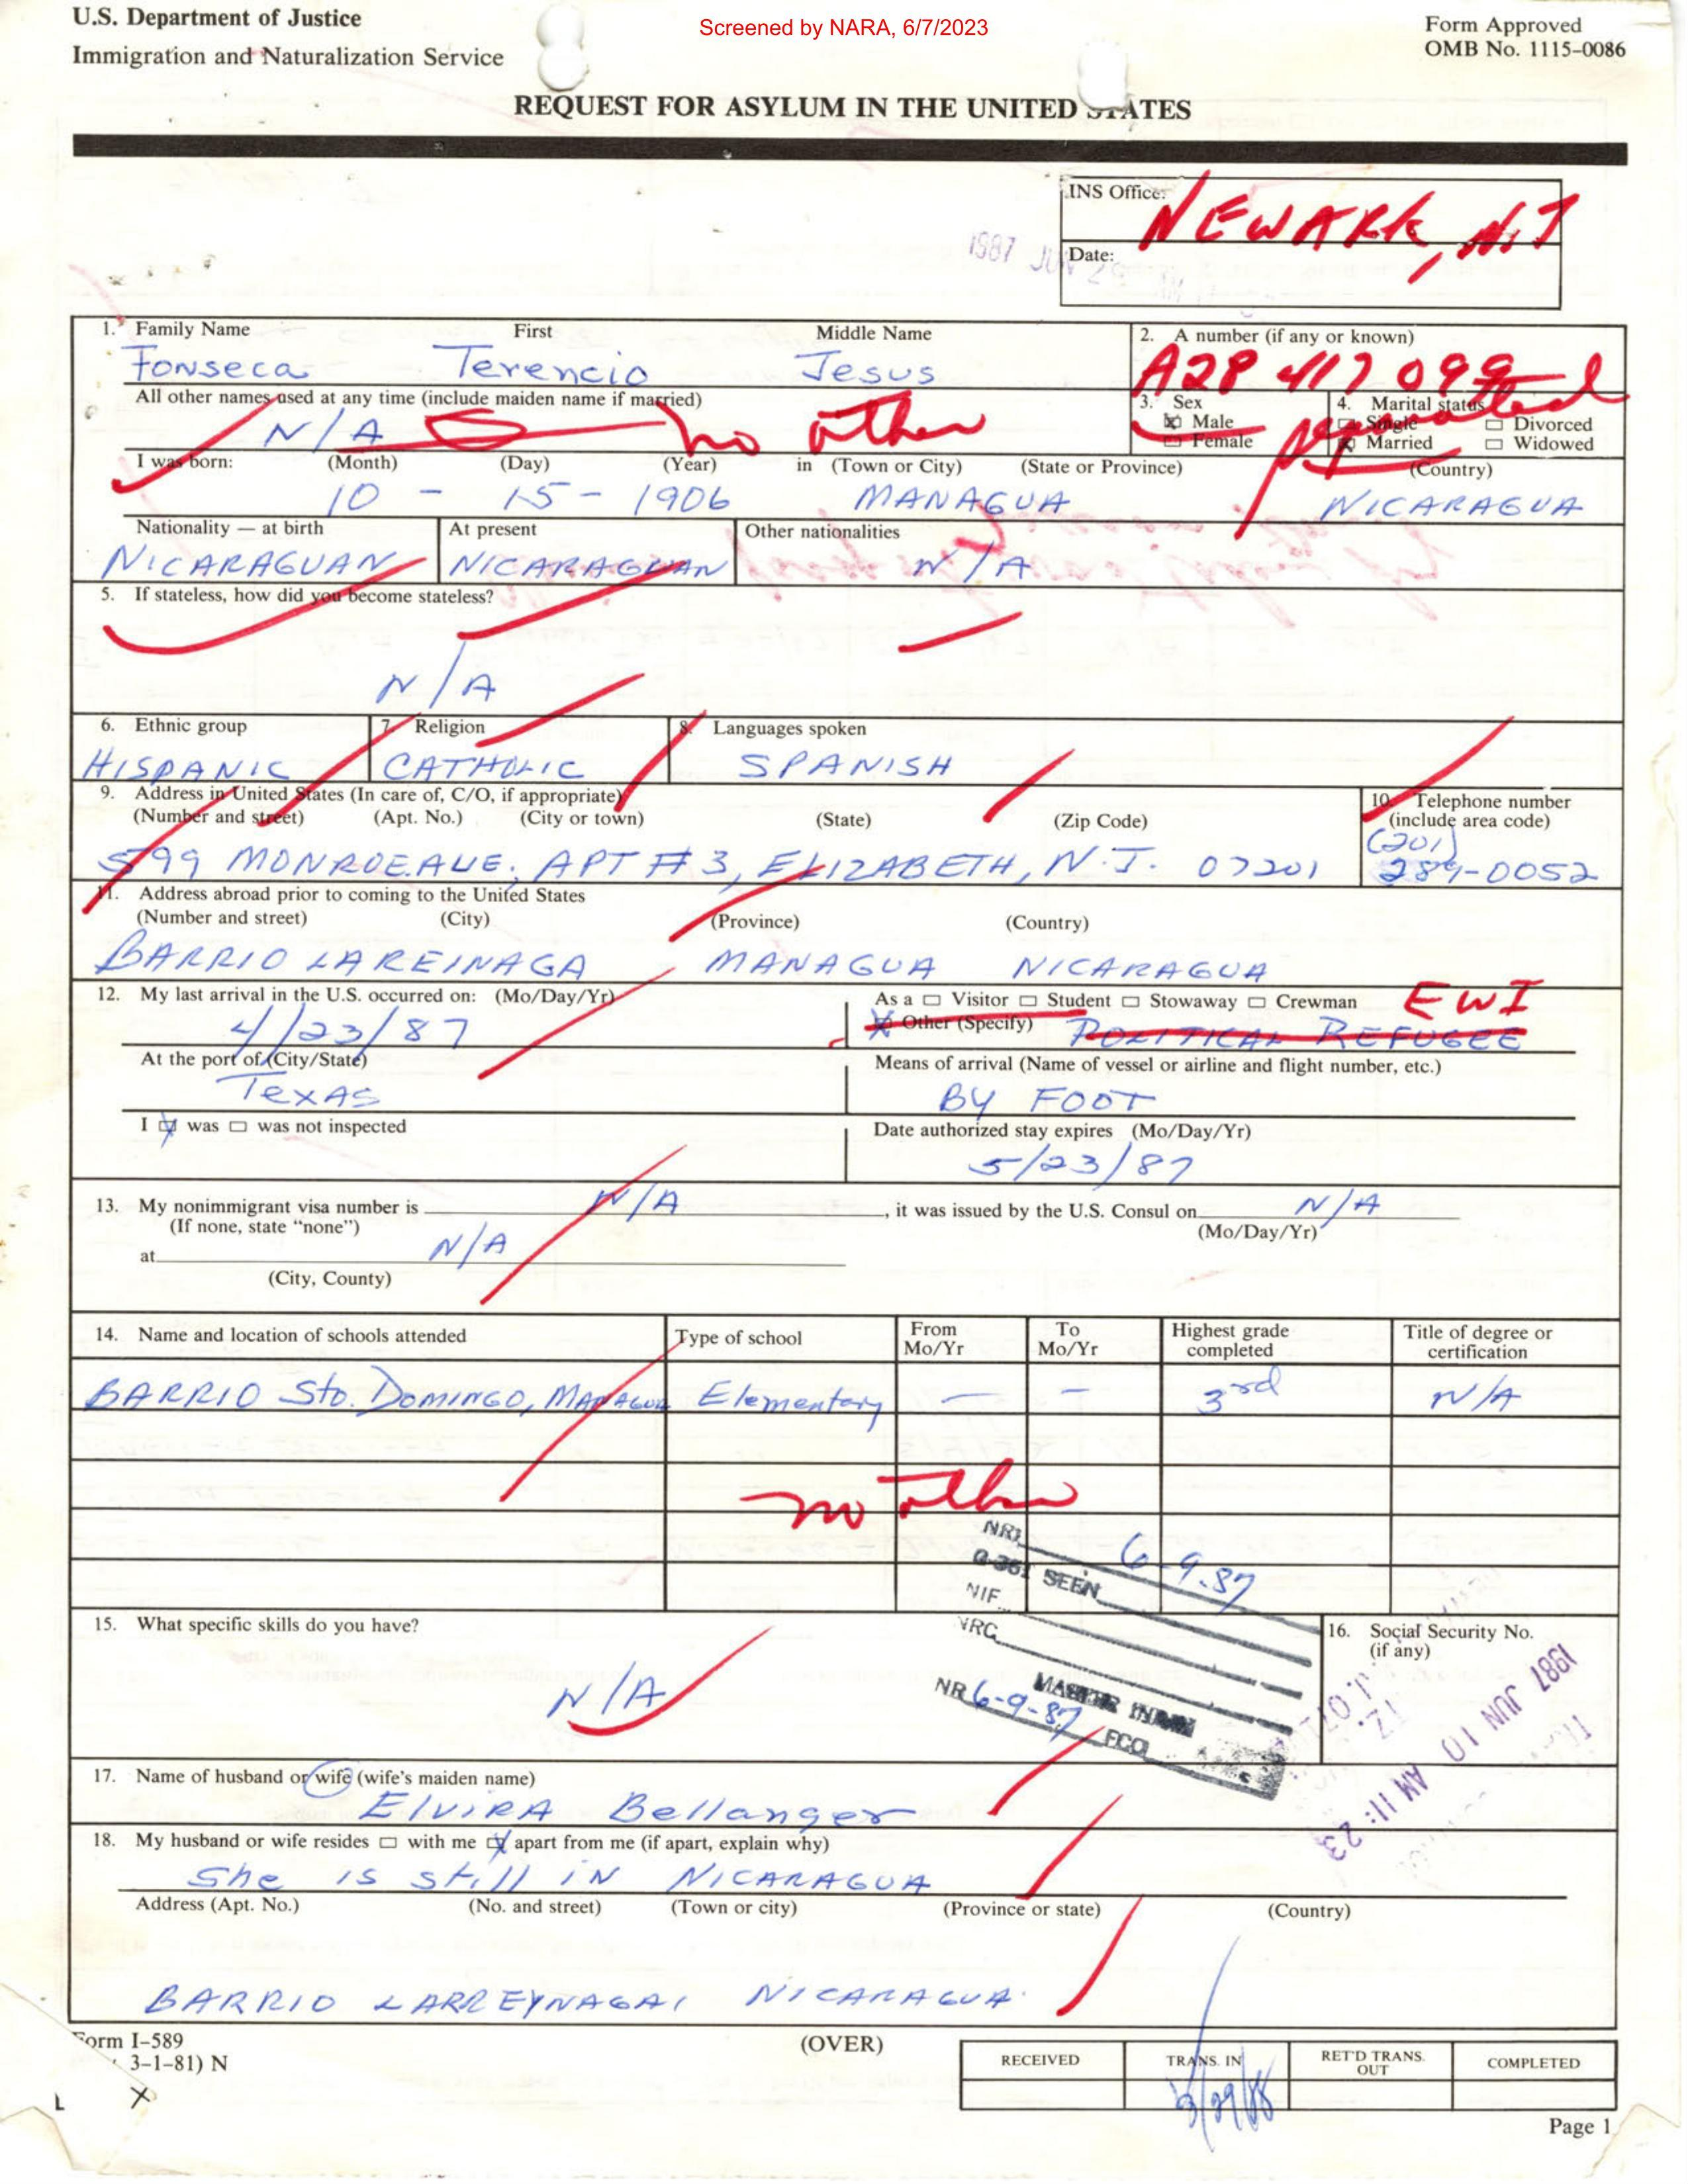 U.S. Department of Justice
Immigration and Naturalization Service
Screened by NARA, 6/7/2023
Form Approved
OMB No. 1115-0086
REQUEST FOR ASYLUM IN THE UNITED STATES
INS Office: NEWARK, NJ
Date:
1987 JUN
1. Family Name First Middle Name
Fonseca Terencio Jesus
2. A number (if any or known)
A28 417 099
All other names used at any time (include maiden name if married)
N/A no other
3. Sex
Male
Female
4. Marital status
Single Divorced
Married Widowed
separated
I was born: (Month) (Day) (Year) in (Town or City) (State or Province) (Country)
10 - 15 - 1906 MANAGUA NICARAGUA
Nationality — at birth At present Other nationalities
NICARAGUAN NICARAGUAN N/A
5. If stateless, how did you become stateless?
N/A
6. Ethnic group 7. Religion 8. Languages spoken
HISPANIC CATHOLIC SPANISH
9. Address in United States (In care of, C/O, if appropriate)
(Number and street) (Apt. No.) (City or town) (State) (Zip Code)
599 MONROE AVE, APT # 3, ELIZABETH, N.J. 07201
10. Telephone number
(include area code)
(201)
289-0052
11. Address abroad prior to coming to the United States
(Number and street) (City) (Province) (Country)
BARRIO LAREINAGA MANAGUA NICARAGUA
12. My last arrival in the U.S. occurred on: (Mo/Day/Yr)
4/23/87
As a Visitor Student Stowaway Crewman EWI
Other (Specify) POLITICAL REFUGEE
At the port of (City/State)
Texas
Means of arrival (Name of vessel or airline and flight number, etc.)
BY FOOT
I was was not inspected
Date authorized stay expires (Mo/Day/Yr)
5/23/87
13. My nonimmigrant visa number is N/A, it was issued by the U.S. Consul on N/A
(If none, state “none”) (Mo/Day/Yr)
at N/A
(City, County)
14. Name and location of schools attended Type of school From Mo/Yr To Mo/Yr Highest grade completed Title of degree or certification
BARRIO Sto. DOMINGO, MANAGUA Elementary — — 3rd N/A
no other
NRI 6-9-87
G-361 SEEN
NIF
NRC
MASTER INDEX
NR 6-9-87 FCO
15. What specific skills do you have?
N/A
16. Social Security No.
(if any)
1987 JUN 10 AM 11:23
17. Name of husband or wife (wife’s maiden name)
ElVIRA Bellanger
18. My husband or wife resides with me apart from me (if apart, explain why)
She is still in NICARAGUA
Address (Apt. No.) (No. and street) (Town or city) (Province or state) (Country)
BARRIO LARREYNAGA, NICARAGUA
Form I-589
3-1-81) N
X
(OVER)
RECEIVED TRANS. IN RET'D TRANS. OUT COMPLETED
Page 1